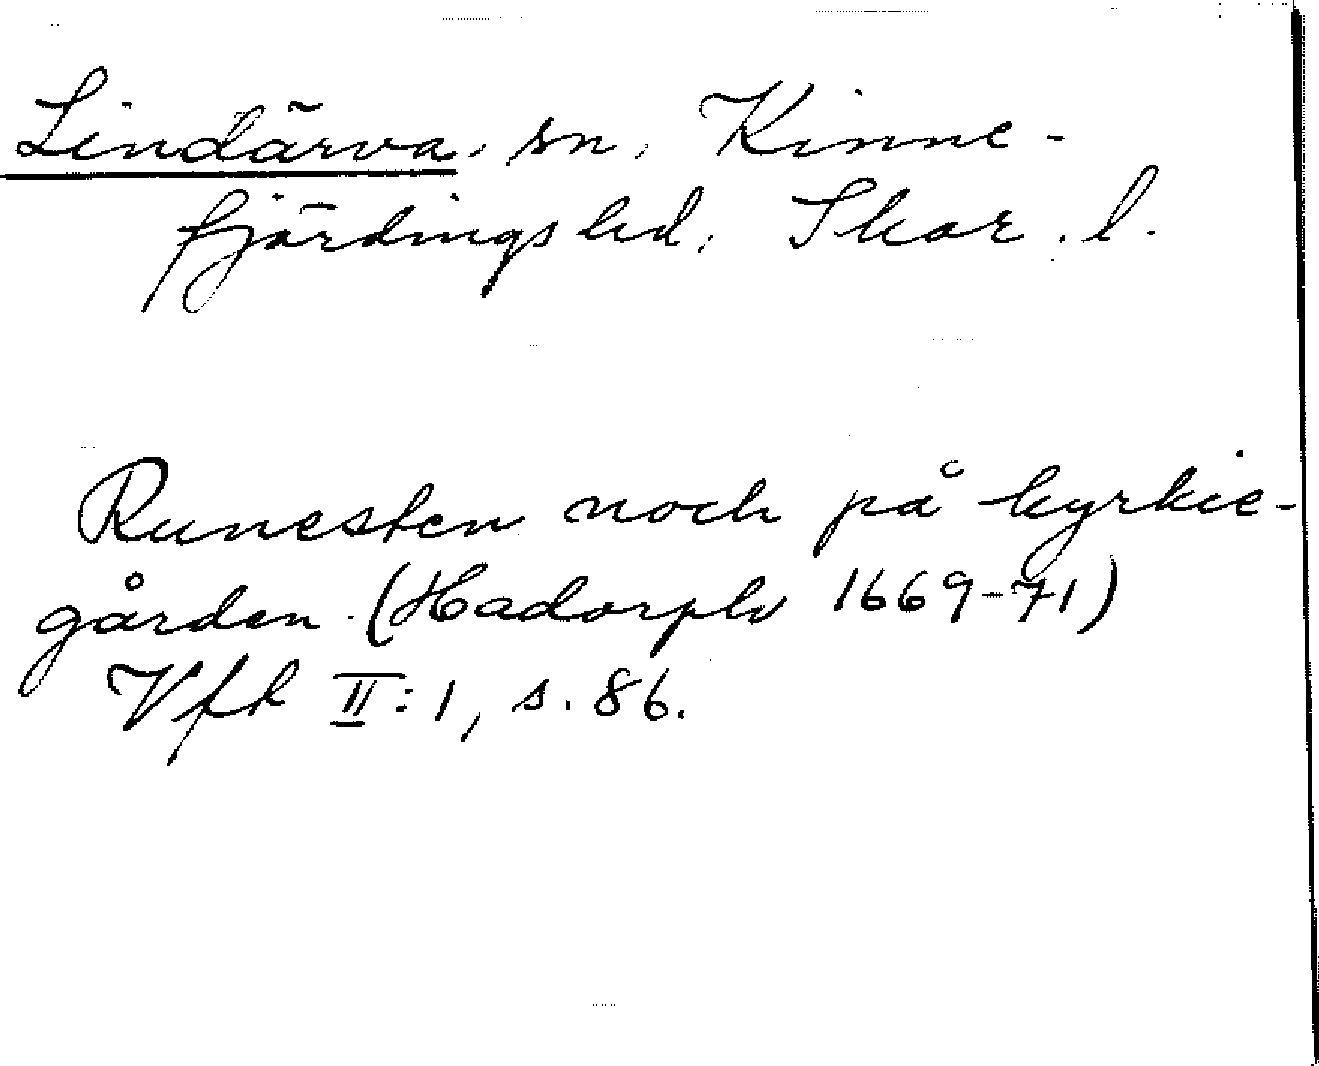 Lindärva, sn, Kinne-
fjärdings hd, Skar. l.
Runesten noch på kyrkie-
gården. (Hadorph 1669-71)
Vfk II:1, s. 86.